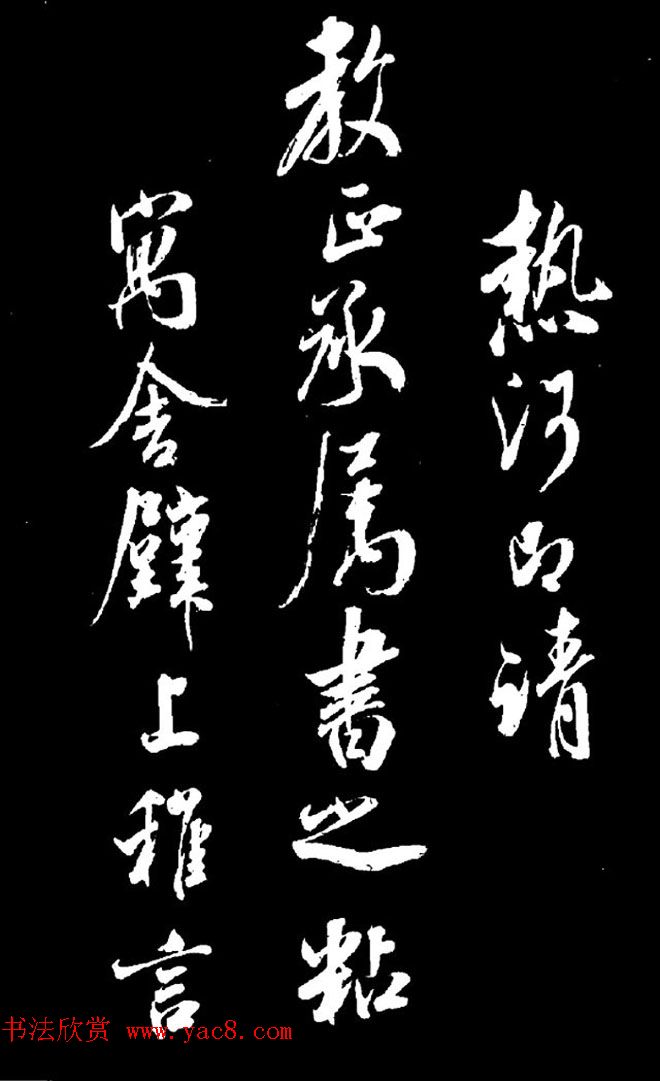 熱河即請
教正承属書之粘
寓舍壁上稚言
书法欣赏 www.yac8.com